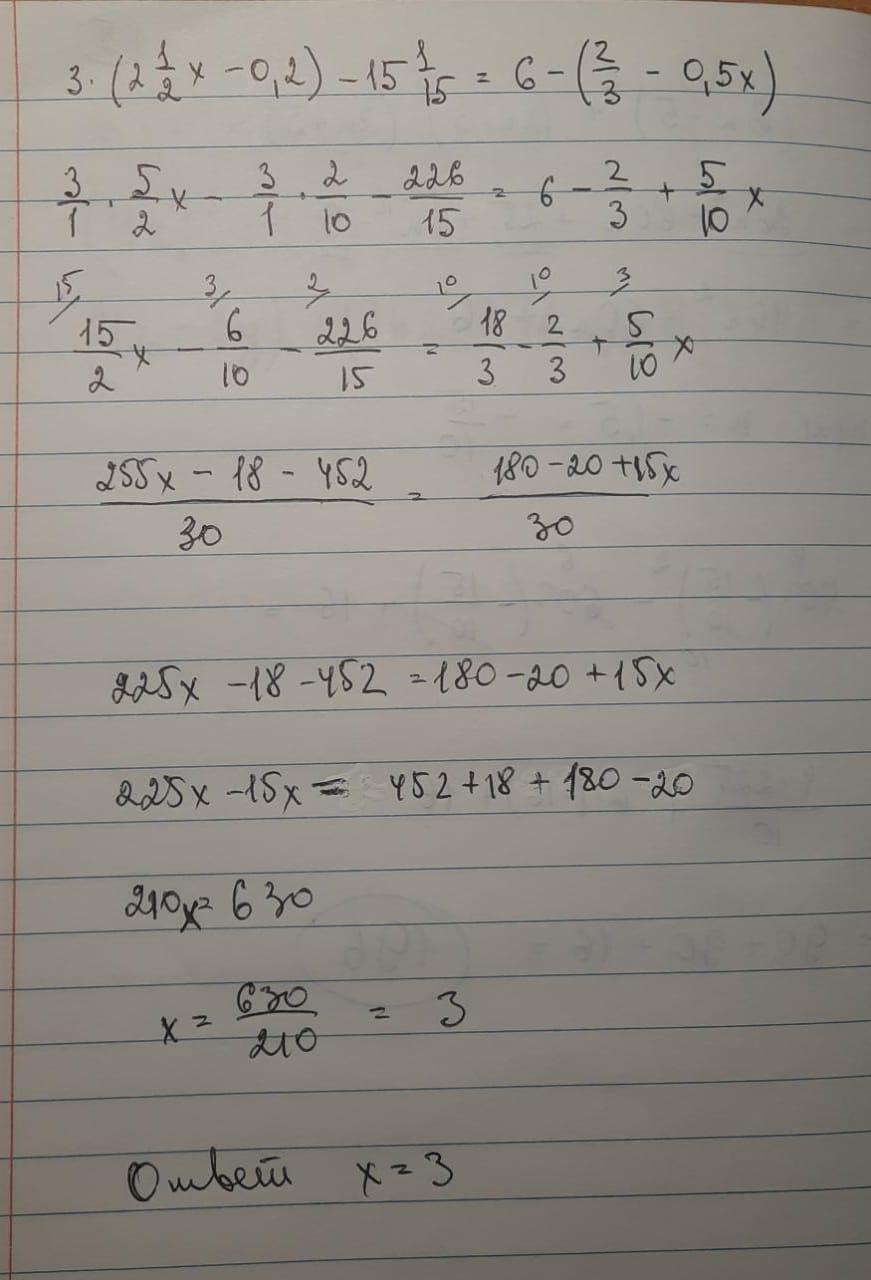 3·(2 1/2 x - 0,2) - 15 1/15 = 6 - (2/3 - 0,5x)
3/1 · 5/2 x - 3/1 · 2/10 - 226/15 = 6 - 2/3 + 5/10 x
15/ 3/ 2/ 10/ 10/ 3/
15/2 x - 6/10 - 226/15 = 18/3 - 2/3 + 5/10 x
255x - 18 - 452 / 30 = 180 - 20 + 15x / 30
225x - 18 - 452 = 180 - 20 + 15x
225x - 15x = 452 + 18 + 180 - 20
210x = 630
x = 630/210 = 3
Ответ x = 3